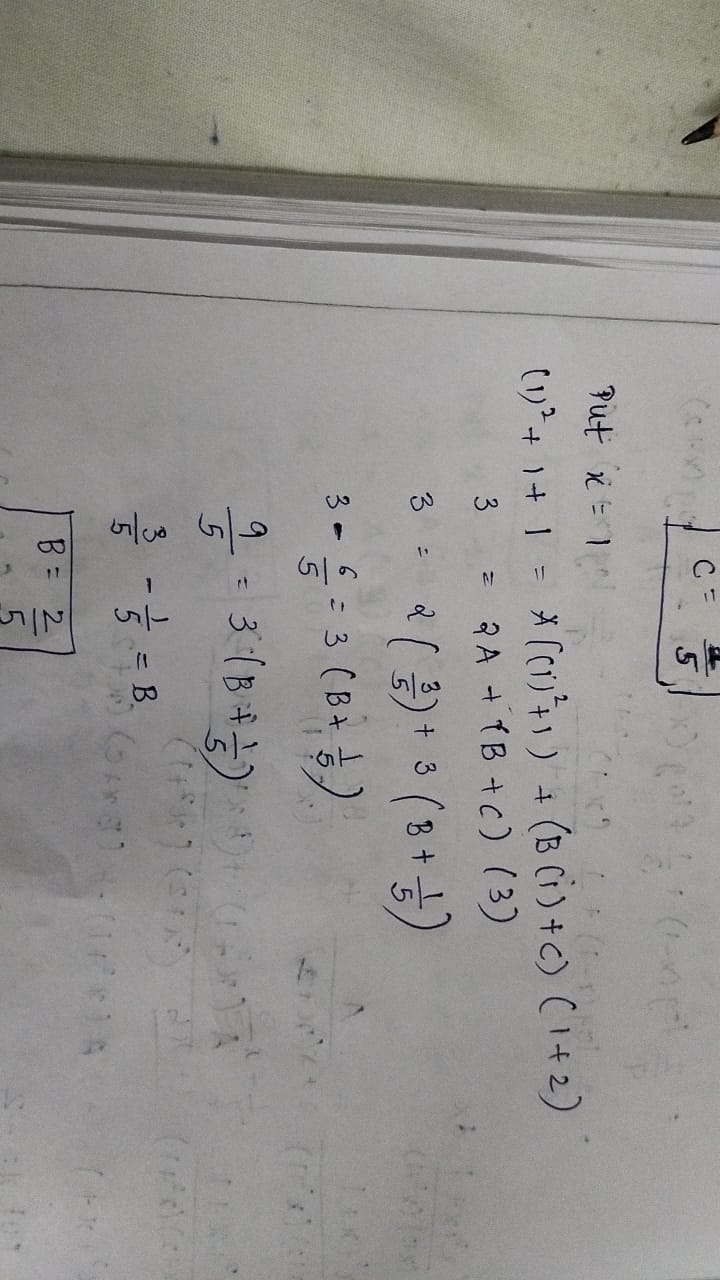 C = 1/5
Put x = 1
(1)² + 1 + 1 = A((1)²+1) + (B(1)+C) (1+2)
3 = 2A + (B + C) (3)
3 = 2(3/5) + 3(B + 1/5)
3 - 6/5 = 3(B + 1/5)
9/5 = 3(B + 1/5)
3/5 - 1/5 = B
B = 2/5